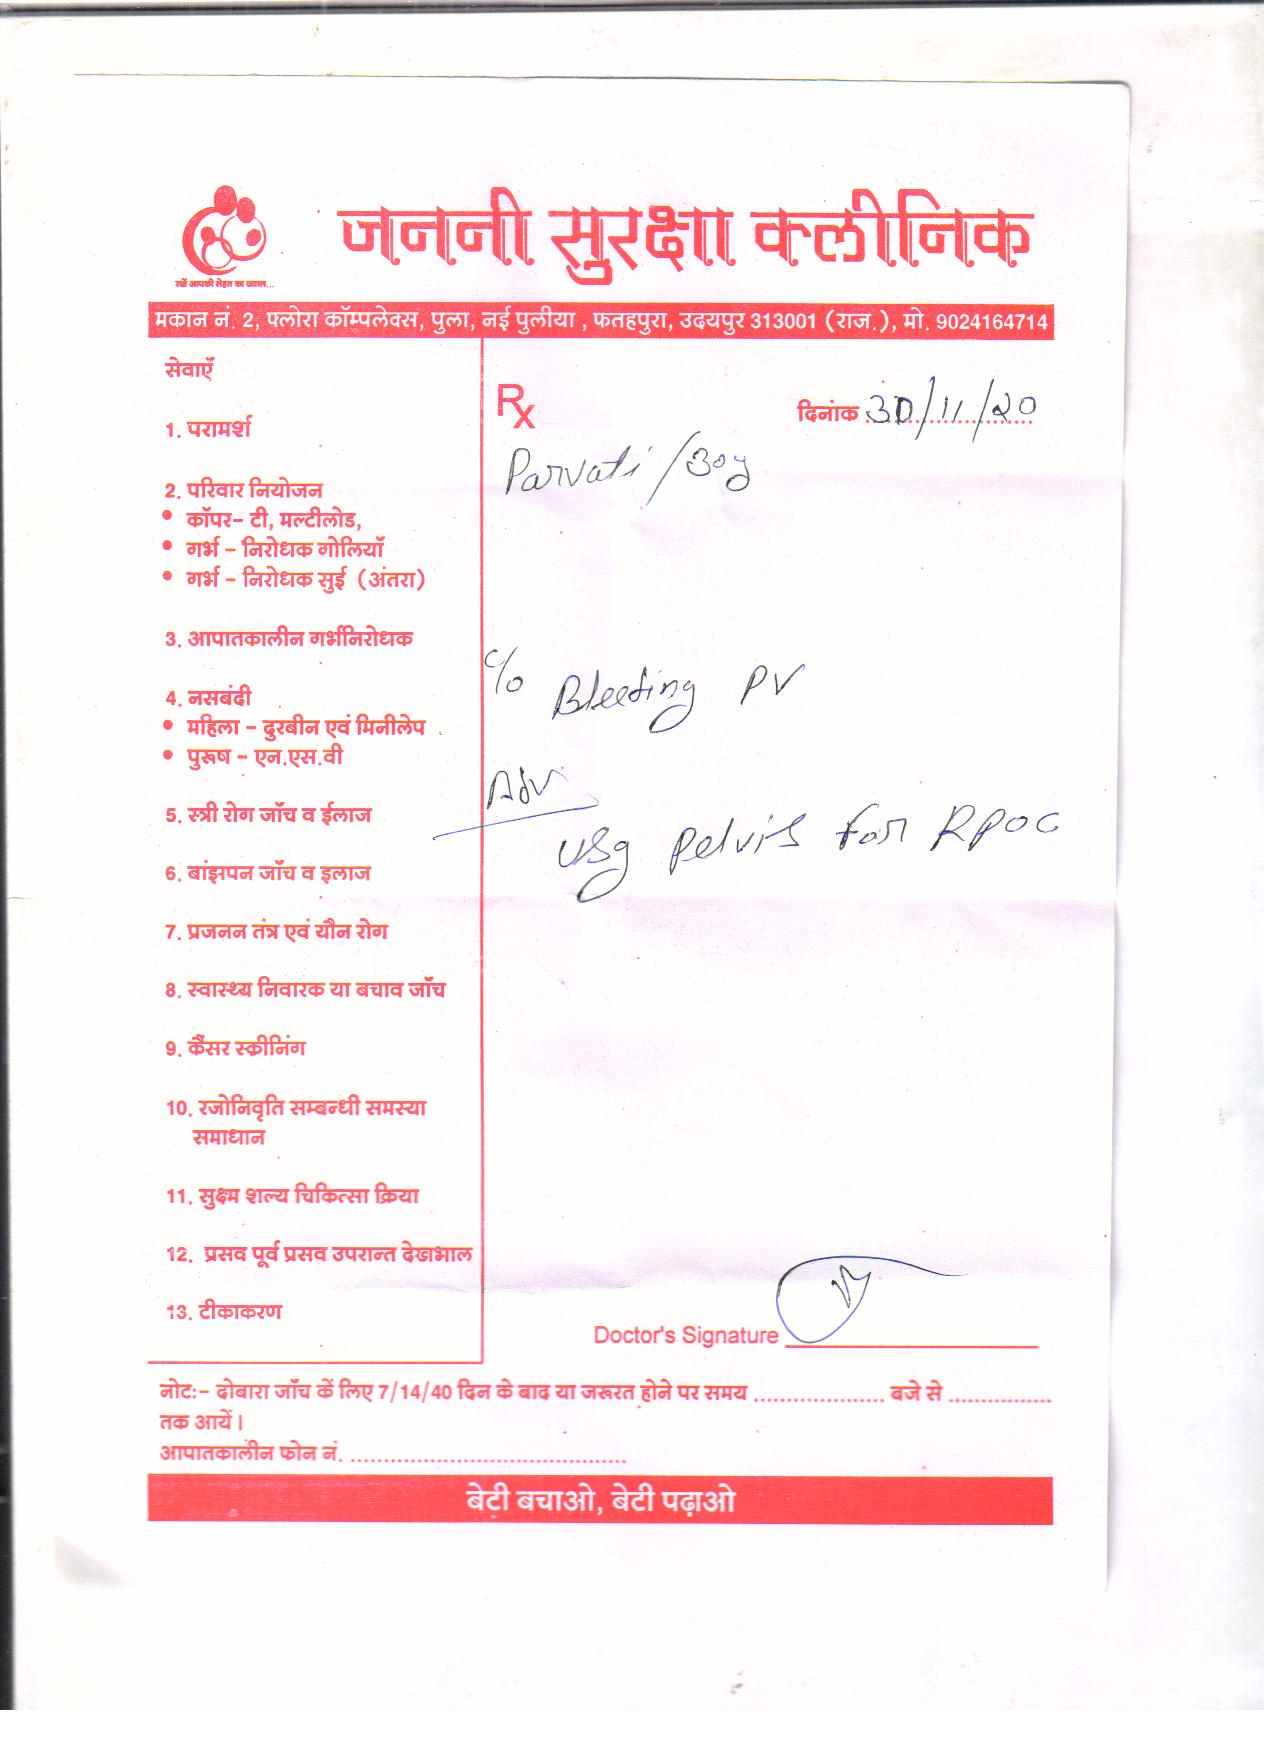 रखें आपकी सेहत का ख्याल...
जननी सुरक्षा क्लीनिक
मकान नं. 2, फ्लोरा कॉम्पलेक्स, पुला, नई पुलीया , फतहपुरा, उदयपुर 313001 (राज.), मो. 9024164714
सेवाएँ
1. परामर्श
2. परिवार नियोजन
• कॉपर- टी, मल्टीलोड,
• गर्भ - निरोधक गोलियाँ
• गर्भ - निरोधक सुई (अंतरा)
3. आपातकालीन गर्भनिरोधक
4. नसबंदी
• महिला - दुरबीन एवं मिनीलेप
• पुरूष - एन.एस.वी
5. स्त्री रोग जाँच व ईलाज
6. बांझपन जाँच व इलाज
7. प्रजनन तंत्र एवं यौन रोग
8. स्वास्थ्य निवारक या बचाव जाँच
9. कैंसर स्क्रीनिंग
10. रजोनिवृति सम्बन्धी समस्या
समाधान
11. सुक्ष्म शल्य चिकित्सा क्रिया
12. प्रसव पूर्व प्रसव उपरान्त देखभाल
13. टीकाकरण
Rx
दिनांक 30/11/20
Parvati/30y
c/o Bleeding PV
Adv
USg pelvis for RPOC
Doctor's Signature
नोट:- दोबारा जाँच कें लिए 7/14/40 दिन के बाद या जरूरत होने पर समय .................... बजे से ................
तक आयें।
आपातकालीन फोन नं. ..........................................
बेटी बचाओ, बेटी पढ़ाओ